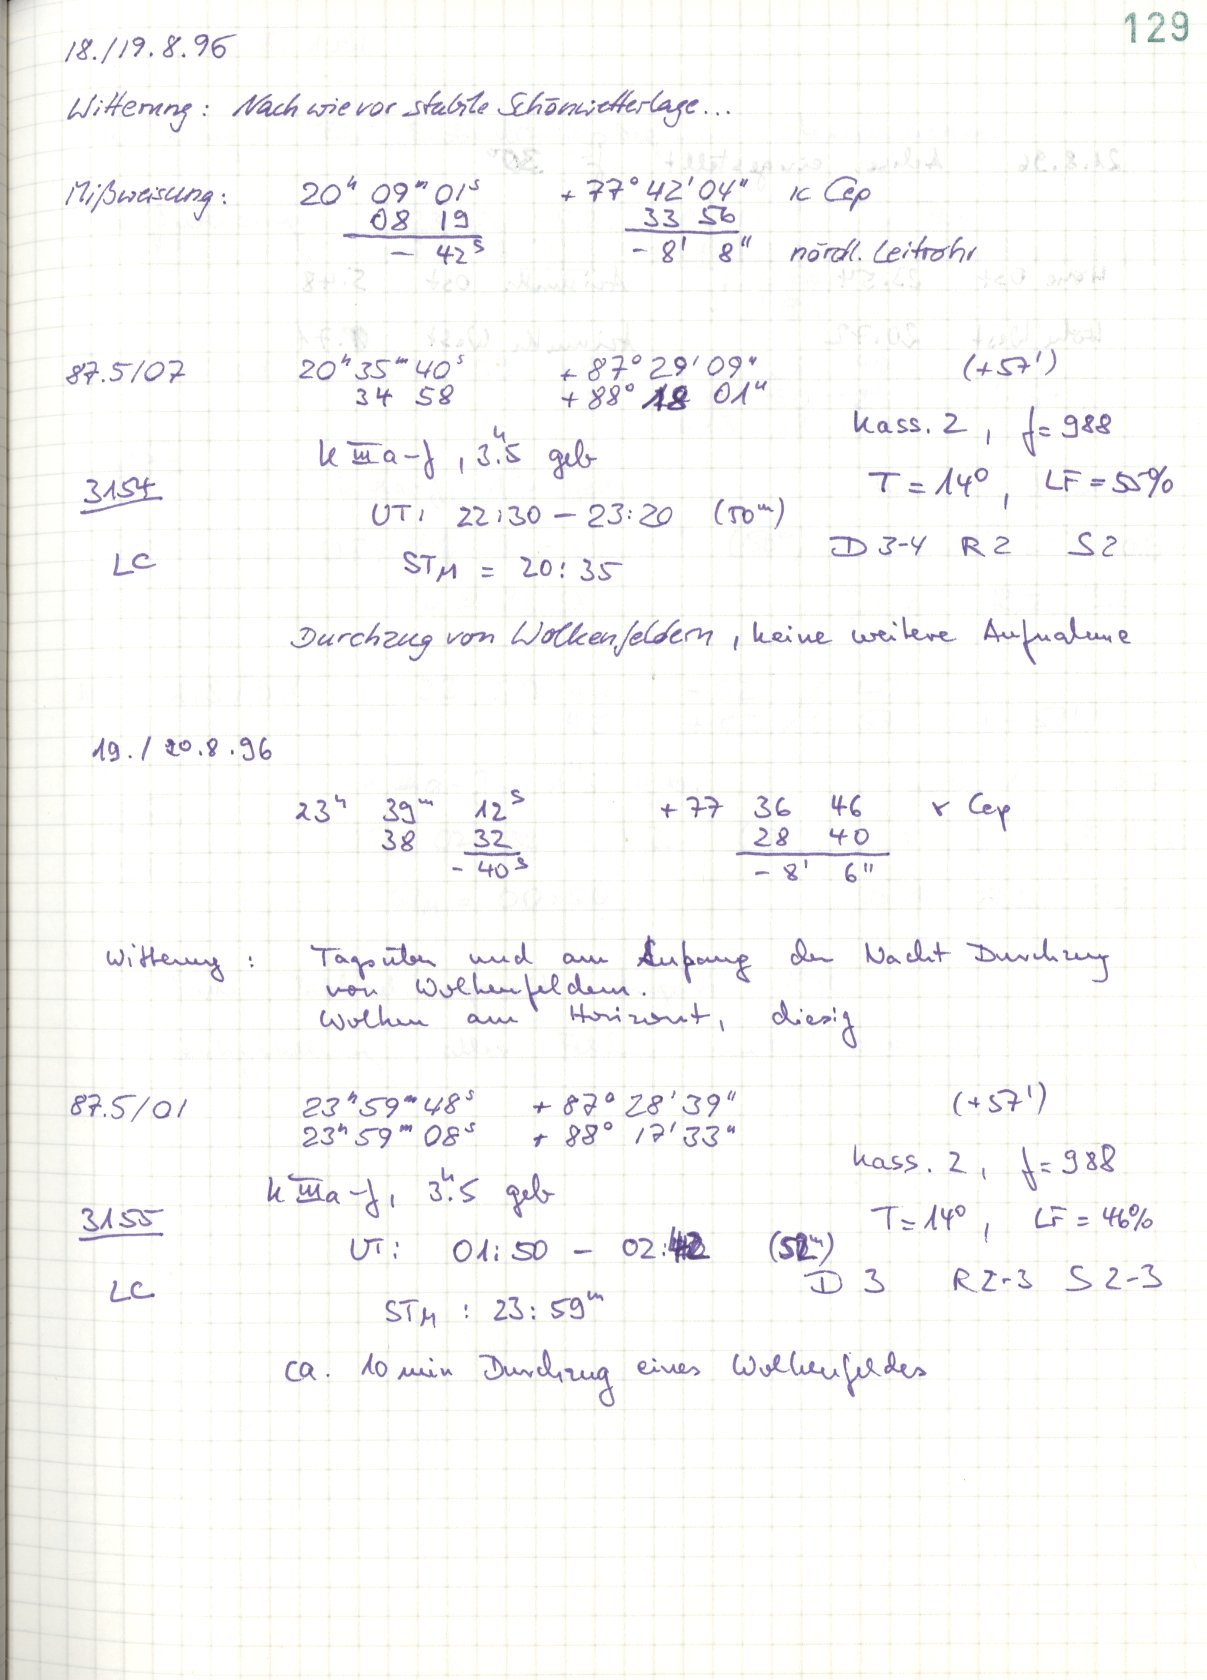 129
18./19.8.96
Witterung: Nach wie vor stabile Schönwetterlage...
Mißweisung: 20ʰ 09ᵐ 01ˢ +77° 42' 04" κ Cep
08 19 33 56
- 42ˢ - 8' 8" nördl. Leitrohr
87.5/07 20ʰ 35ᵐ 40ˢ +87° 29' 09" (+57')
34 58 +88° 18 01"
Kass. 2, f=988
k IIIa-f, 3ʰ.5 geb
3154 T=14°, LF=55%
UT: 22:30 - 23:20 (50ᵐ)
D 3-4 R2 S2
LC STM = 20:35
Durchzug von Wolkenfeldern, keine weitere Aufnahme
19./20.8.96
23ʰ 39ᵐ 12ˢ +77 36 46 γ Cep
38 32 28 40
- 40ˢ - 8' 6"
Witterung: Tagsüber und am Anfang der Nacht Durchzug
von Wolkenfeldern.
Wolken am Horizont, diesig
87.5/01 23ʰ 59ᵐ 48ˢ +87° 28' 39" (+57')
23ʰ 59ᵐ 08ˢ +88° 17' 33"
Kass. 2, f=988
k IIIa-f, 3ʰ.5 geb
3155 T=14°, LF=46%
UT: 01:50 - 02:42 (52ᵐ)
D 3 R2-3 S2-3
LC STM : 23:59ᵐ
ca. 10 min Durchzug eines Wolkenfeldes